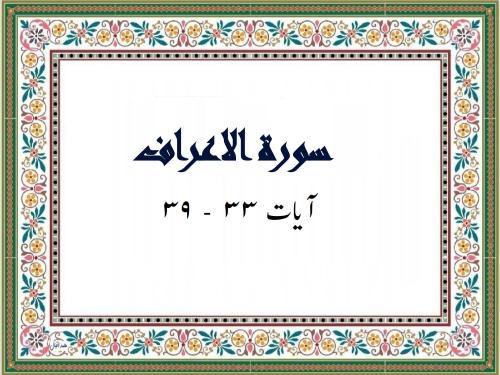 سورة الاعراف
آیات ۳۳ - ۳۹